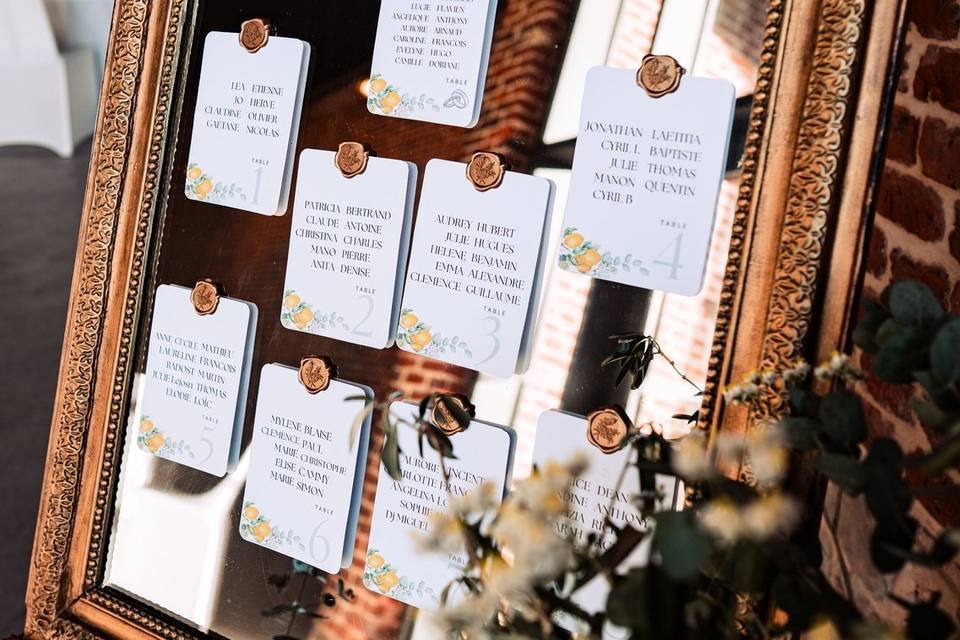 LUCIE FLAVIEN
ANGELIQUE ANTHONY
AURORE ARNAUD
CAROLINE FRANCOIS
EVELYNE HUGO
CAMILLE DORIANE
TABLE
LEA ETIENNE
JO HERVE
CLAUDINE OLIVIER
GAETANE NICOLAS
TABLE
1
PATRICIA BERTRAND
CLAUDE ANTOINE
CHRISTINA CHARLES
MANO PIERRE
ANITA DENISE
TABLE
2
AUDREY HUBERT
JULIE HUGUES
HELENE BENJAMIN
EMMA ALEXANDRE
CLEMENCE GUILLAUME
TABLE
3
JONATHAN LAETITIA
CYRIL L BAPTISTE
JULIE THOMAS
MANON QUENTIN
CYRIL B
TABLE
4
ANNE CECILE MATHIEU
LAURELINE FRANCOIS
RADOST MARTIN
JULIE THOMAS
ELODIE LOÏC
TABLE
5
MYLENE BLAISE
CLEMENCE PAUL
MARIE CHRISTOPHE
ELISE CAMMY
MARIE SIMON
TABLE
6
AURORE VINCENT
ANGELINA
DJ MIGUEL
TABLE
DEAN
ANTHONY